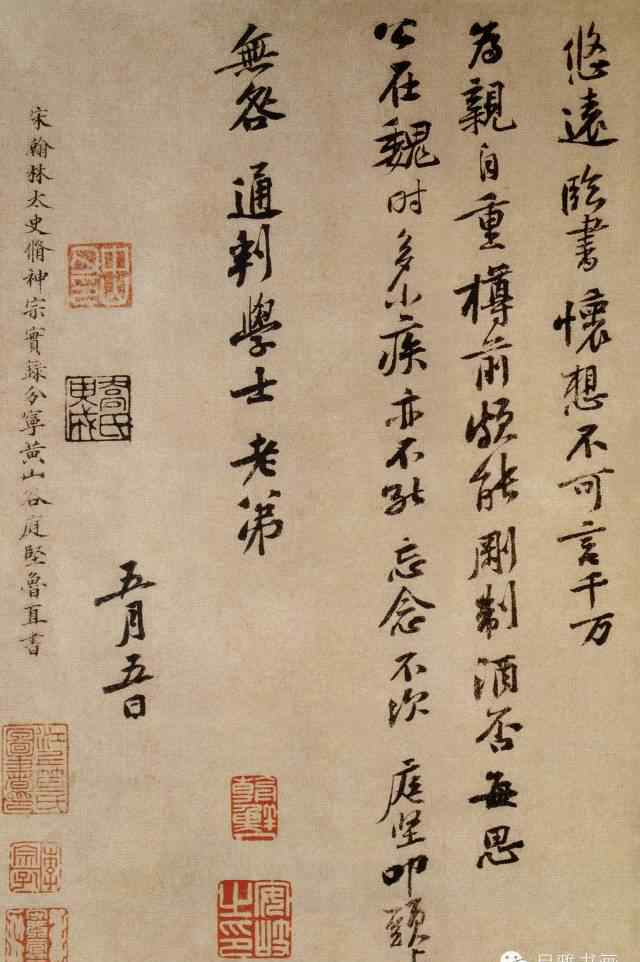 悠遠臨書懷想不可言千万
為親自重樽前頗能剛制酒否每思
公在魏时多小疾亦不能忘念不次 庭坚叩頭上
無咎通判學士老弟
五月五日
宋翰林太史脩神宗實錄分寧黃山谷庭堅魯直書